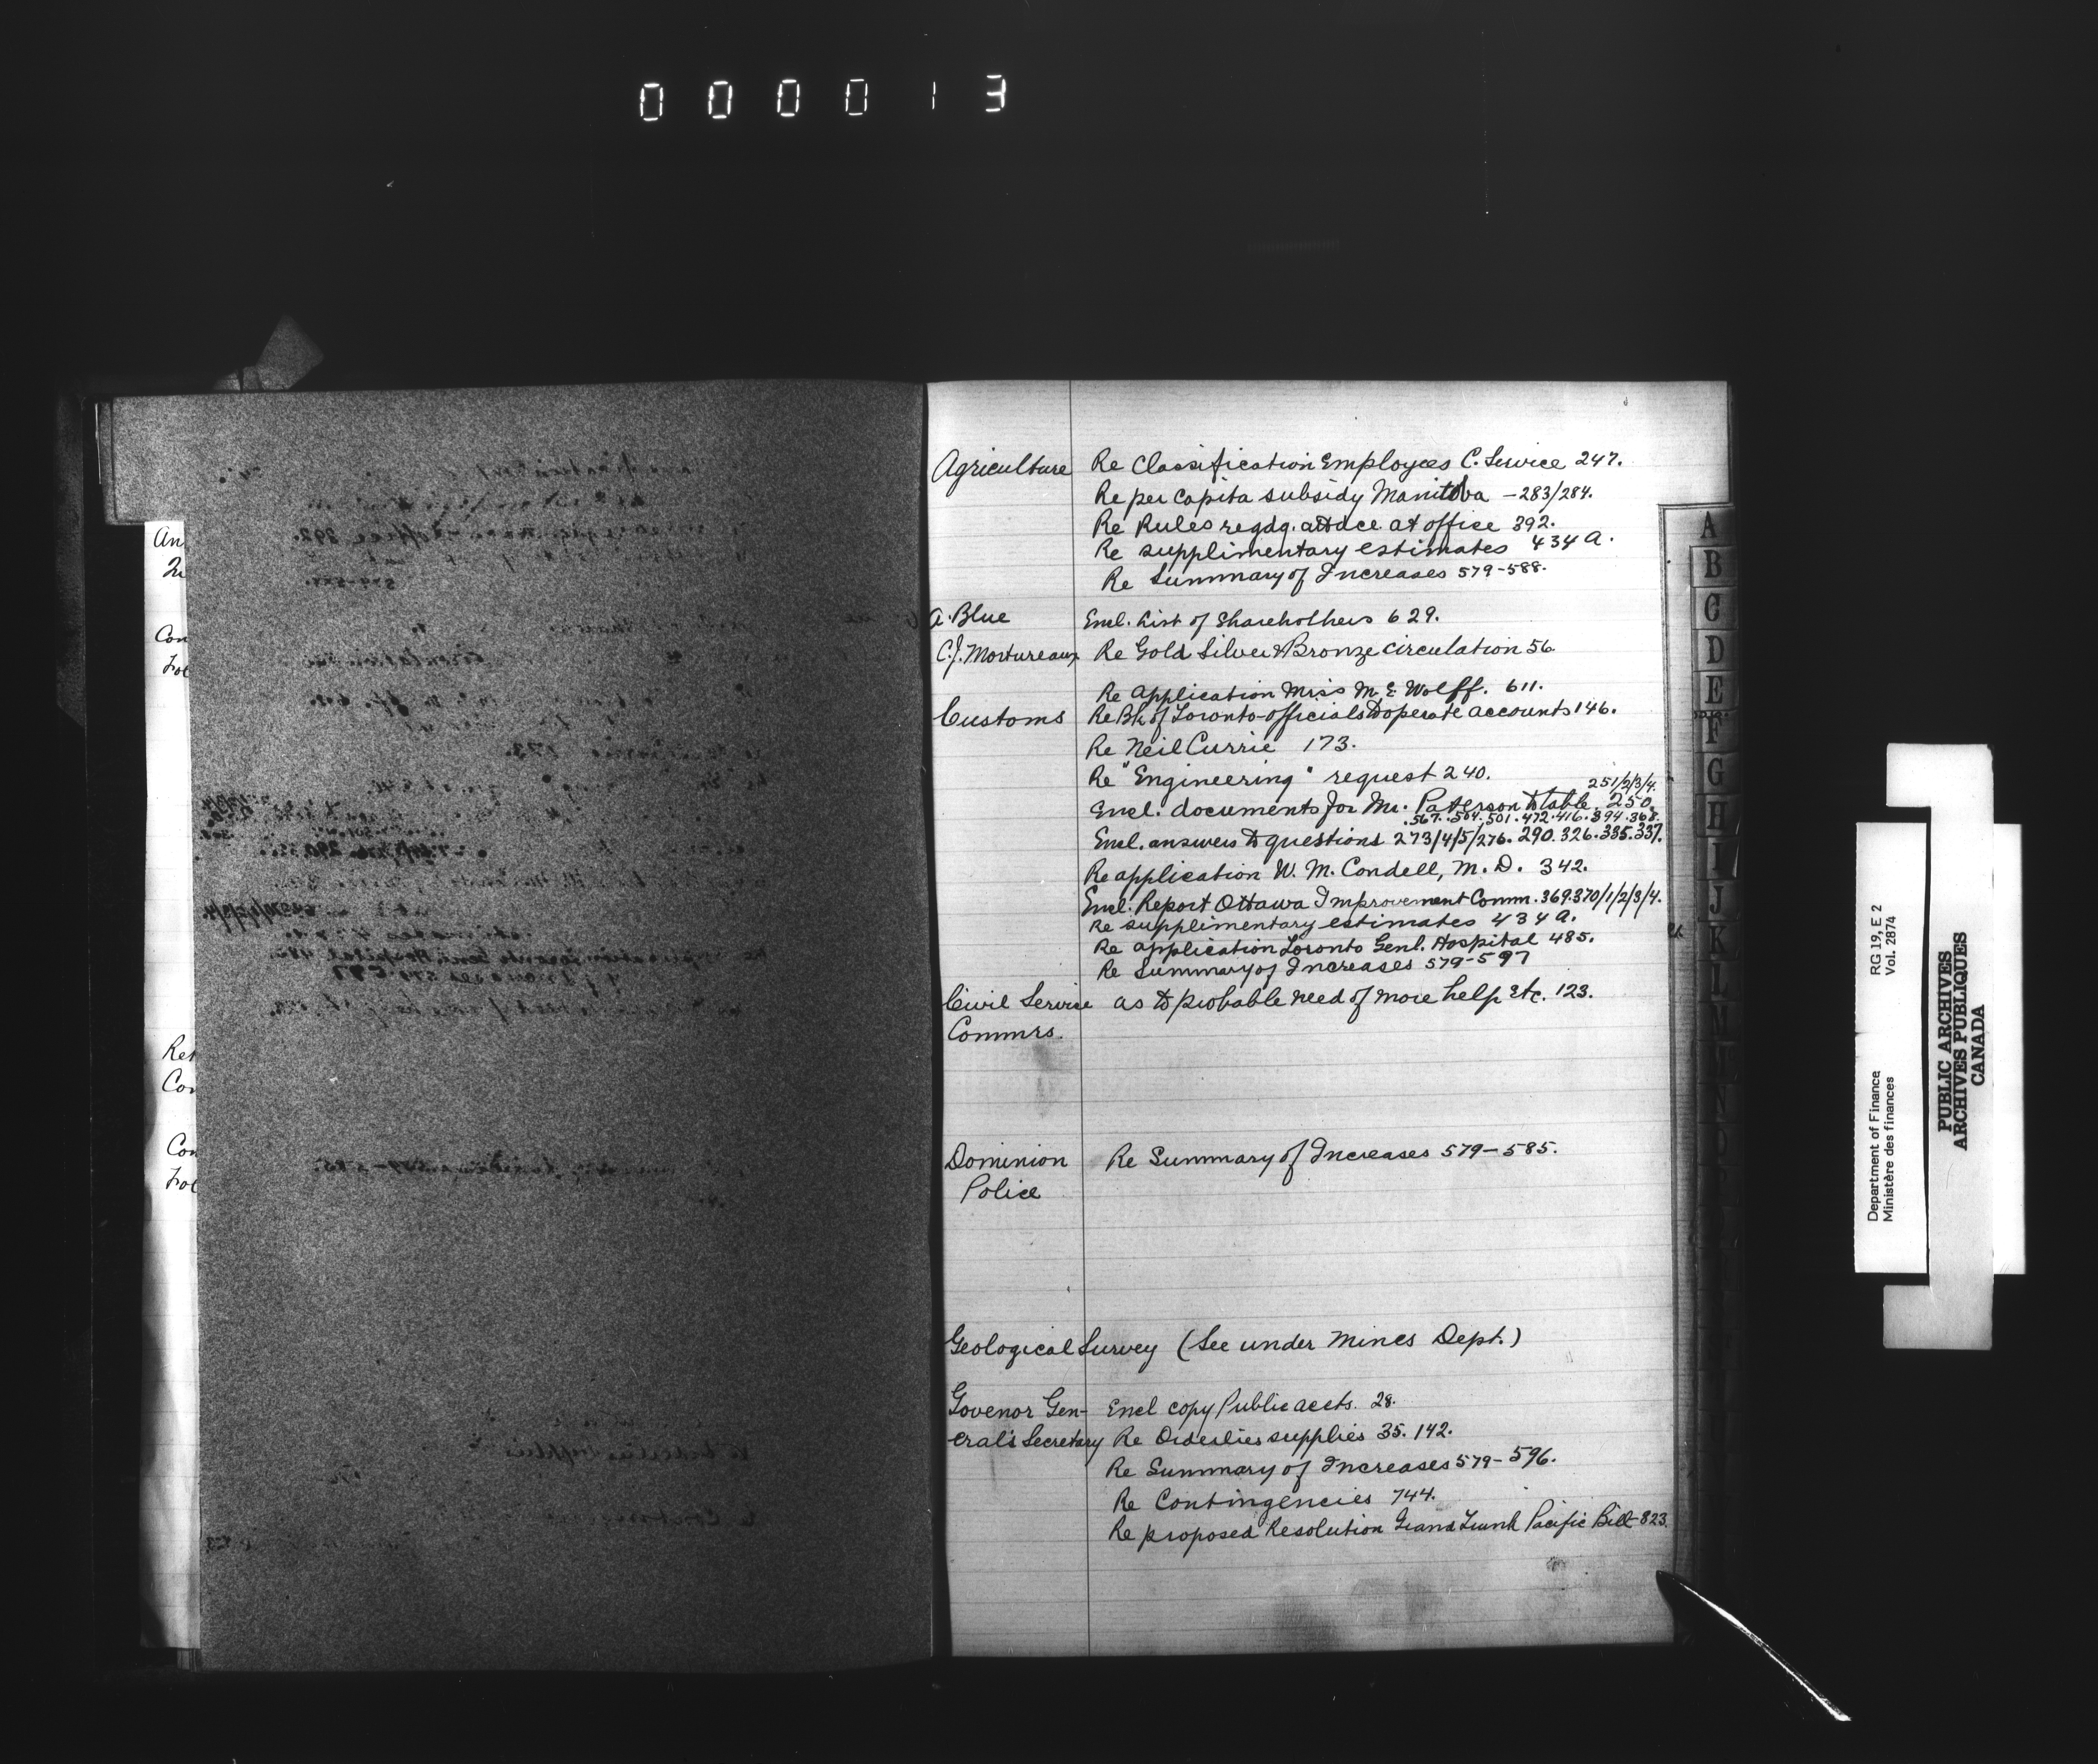 000013
Agriculture Re Classification Employees C. Service 247.
Re per capita subsidy Manitoba - 283/284.
Re Rules regdg. attdce. at office 392.
Re supplimentary estimates 434 A.
Re Summary of Increases 579-588.
A. Blue Encl. List of Shareholhers 629.
C.J. Mortureaux Re Gold Silver & Bronze circulation 56
Re application Miss M. E. Wolff. 611.
Customs Re Bk of Toronto officials to operate accounts 146.
Re Neil Currie 173.
Re "Engineering" request 240.
251/2/3/4.
Encl. documents for Mr. Paterson to table. 250.
.567. 504. 501. 472. 416. 394. 368.
Encl. answers to questions 273/4/5/276. 290. 326. 335. 337.
Re application W. M. Condell, M. D. 342.
Encl. Report Ottawa Improvement Comm. 369.370/1/2/3/4.
Re supplimentary estimates 434 A.
Re application Toronto Genl. Hospital 485.
Re Summary of Increases 579-597
Civil Service as to probable need of more help etc. 123.
Commrs.
Dominion Re Summary of Increases 579-585.
Police
Geological Survey (See under Mines Dept.)
Govenor Gen- Encl copy Public accts. 28.
eral's Secretary Re Orderlies supplies 35. 142.
Re Summary of Increases 579-596.
Re Contingencies 744.
Re proposed Resolution Grand Trunk Pacific Bill-823.
An
Con
Ret
Con
Con
A
B
C
D
E
F
G
H
I
J
K
L
Department of Finance RG 19, E 2
Ministère des finances Vol. 2874
PUBLIC ARCHIVES
ARCHIVES PUBLIQUES
CANADA